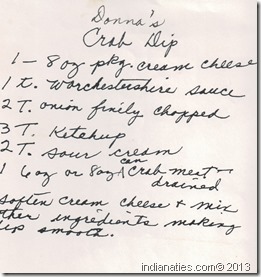 Donna's
Crab Dip
1 - 8 oz pkg. cream cheese
1 t. Worchestershire sauce
2 T. onion finily chopped
3 T. Ketchup
2 T. sour cream
1 6 oz or 8 oz can crab meat -
drained
soften cream cheese & mix
ther ingredients making
ip smooth.
indianaties.com© 2013